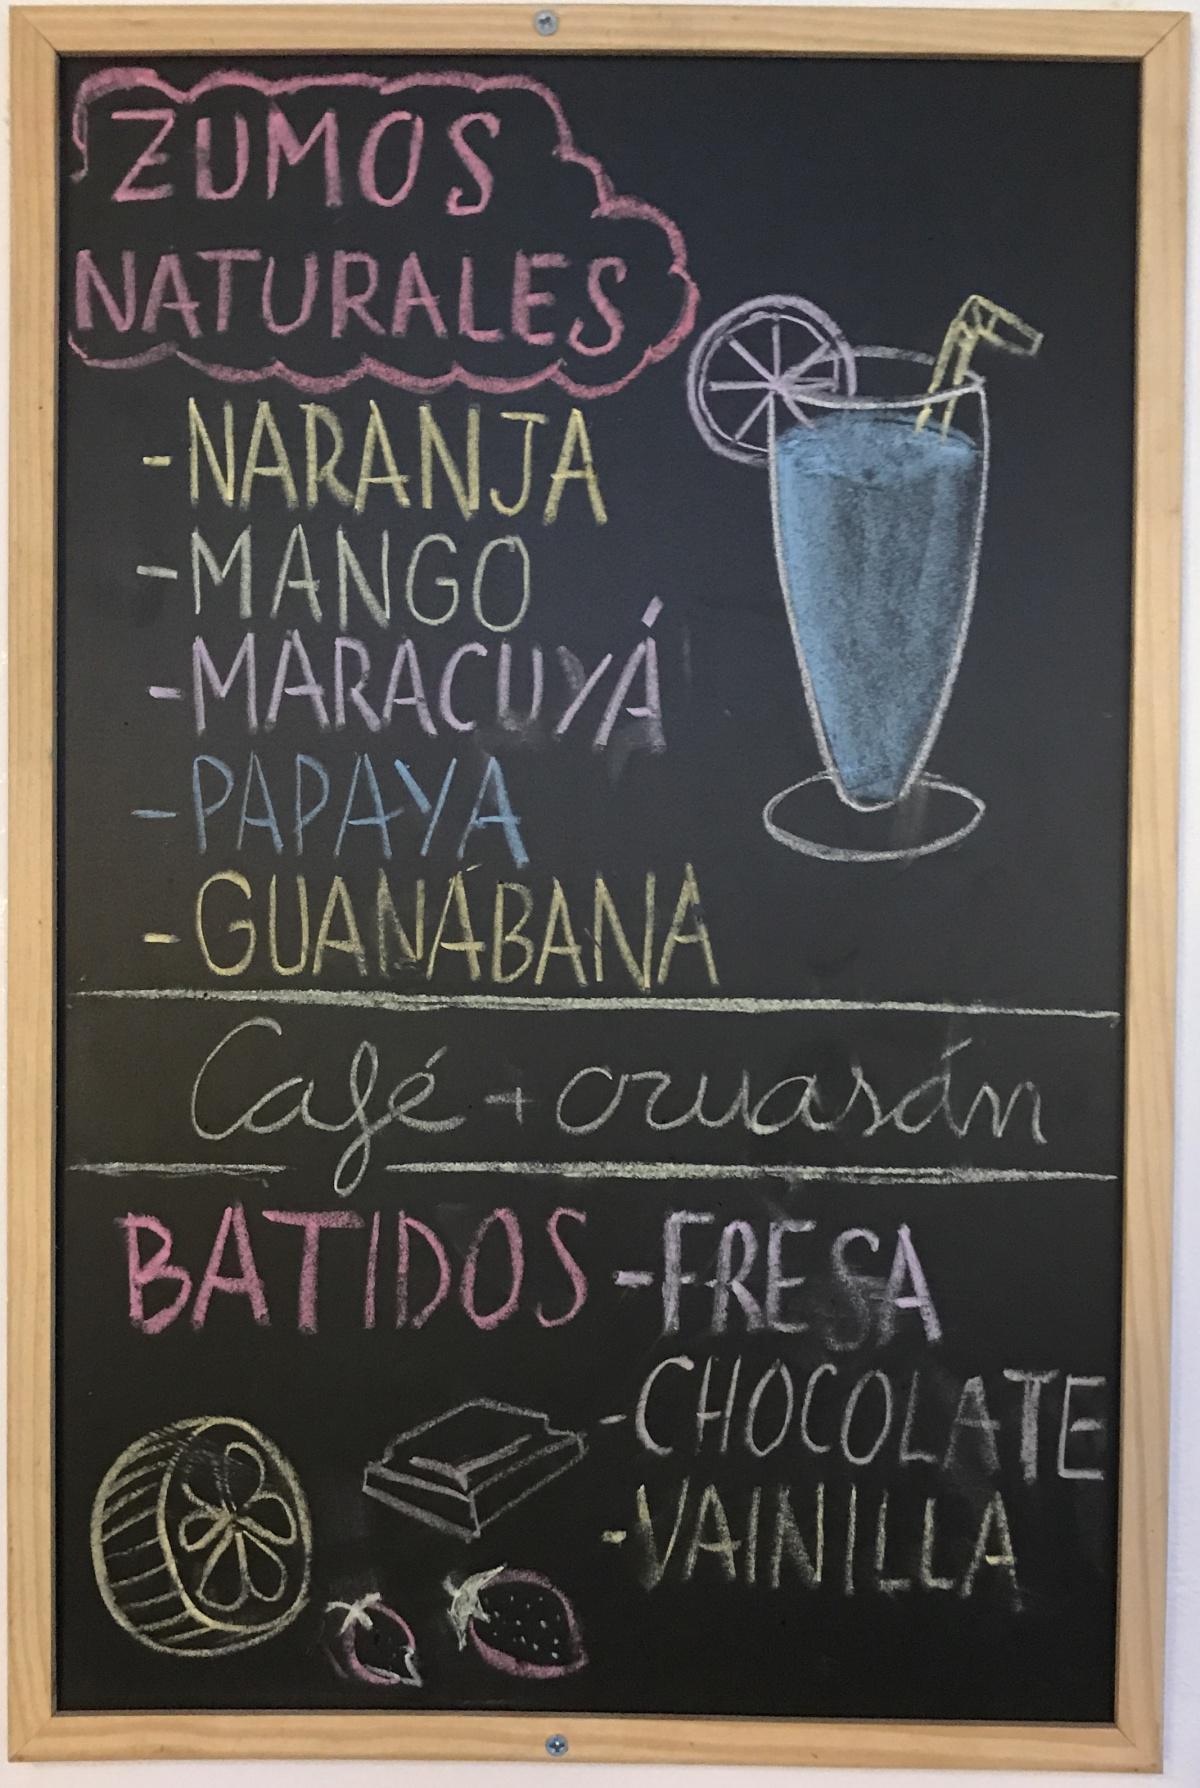 ZUMOS
NATURALES
-NARANJA
-MANGO
-MARACUYÁ
-PAPAYA
-GUANÁBANA
Café + cruasán
BATIDOS -FRESA
-CHOCOLATE
-VAINILLA